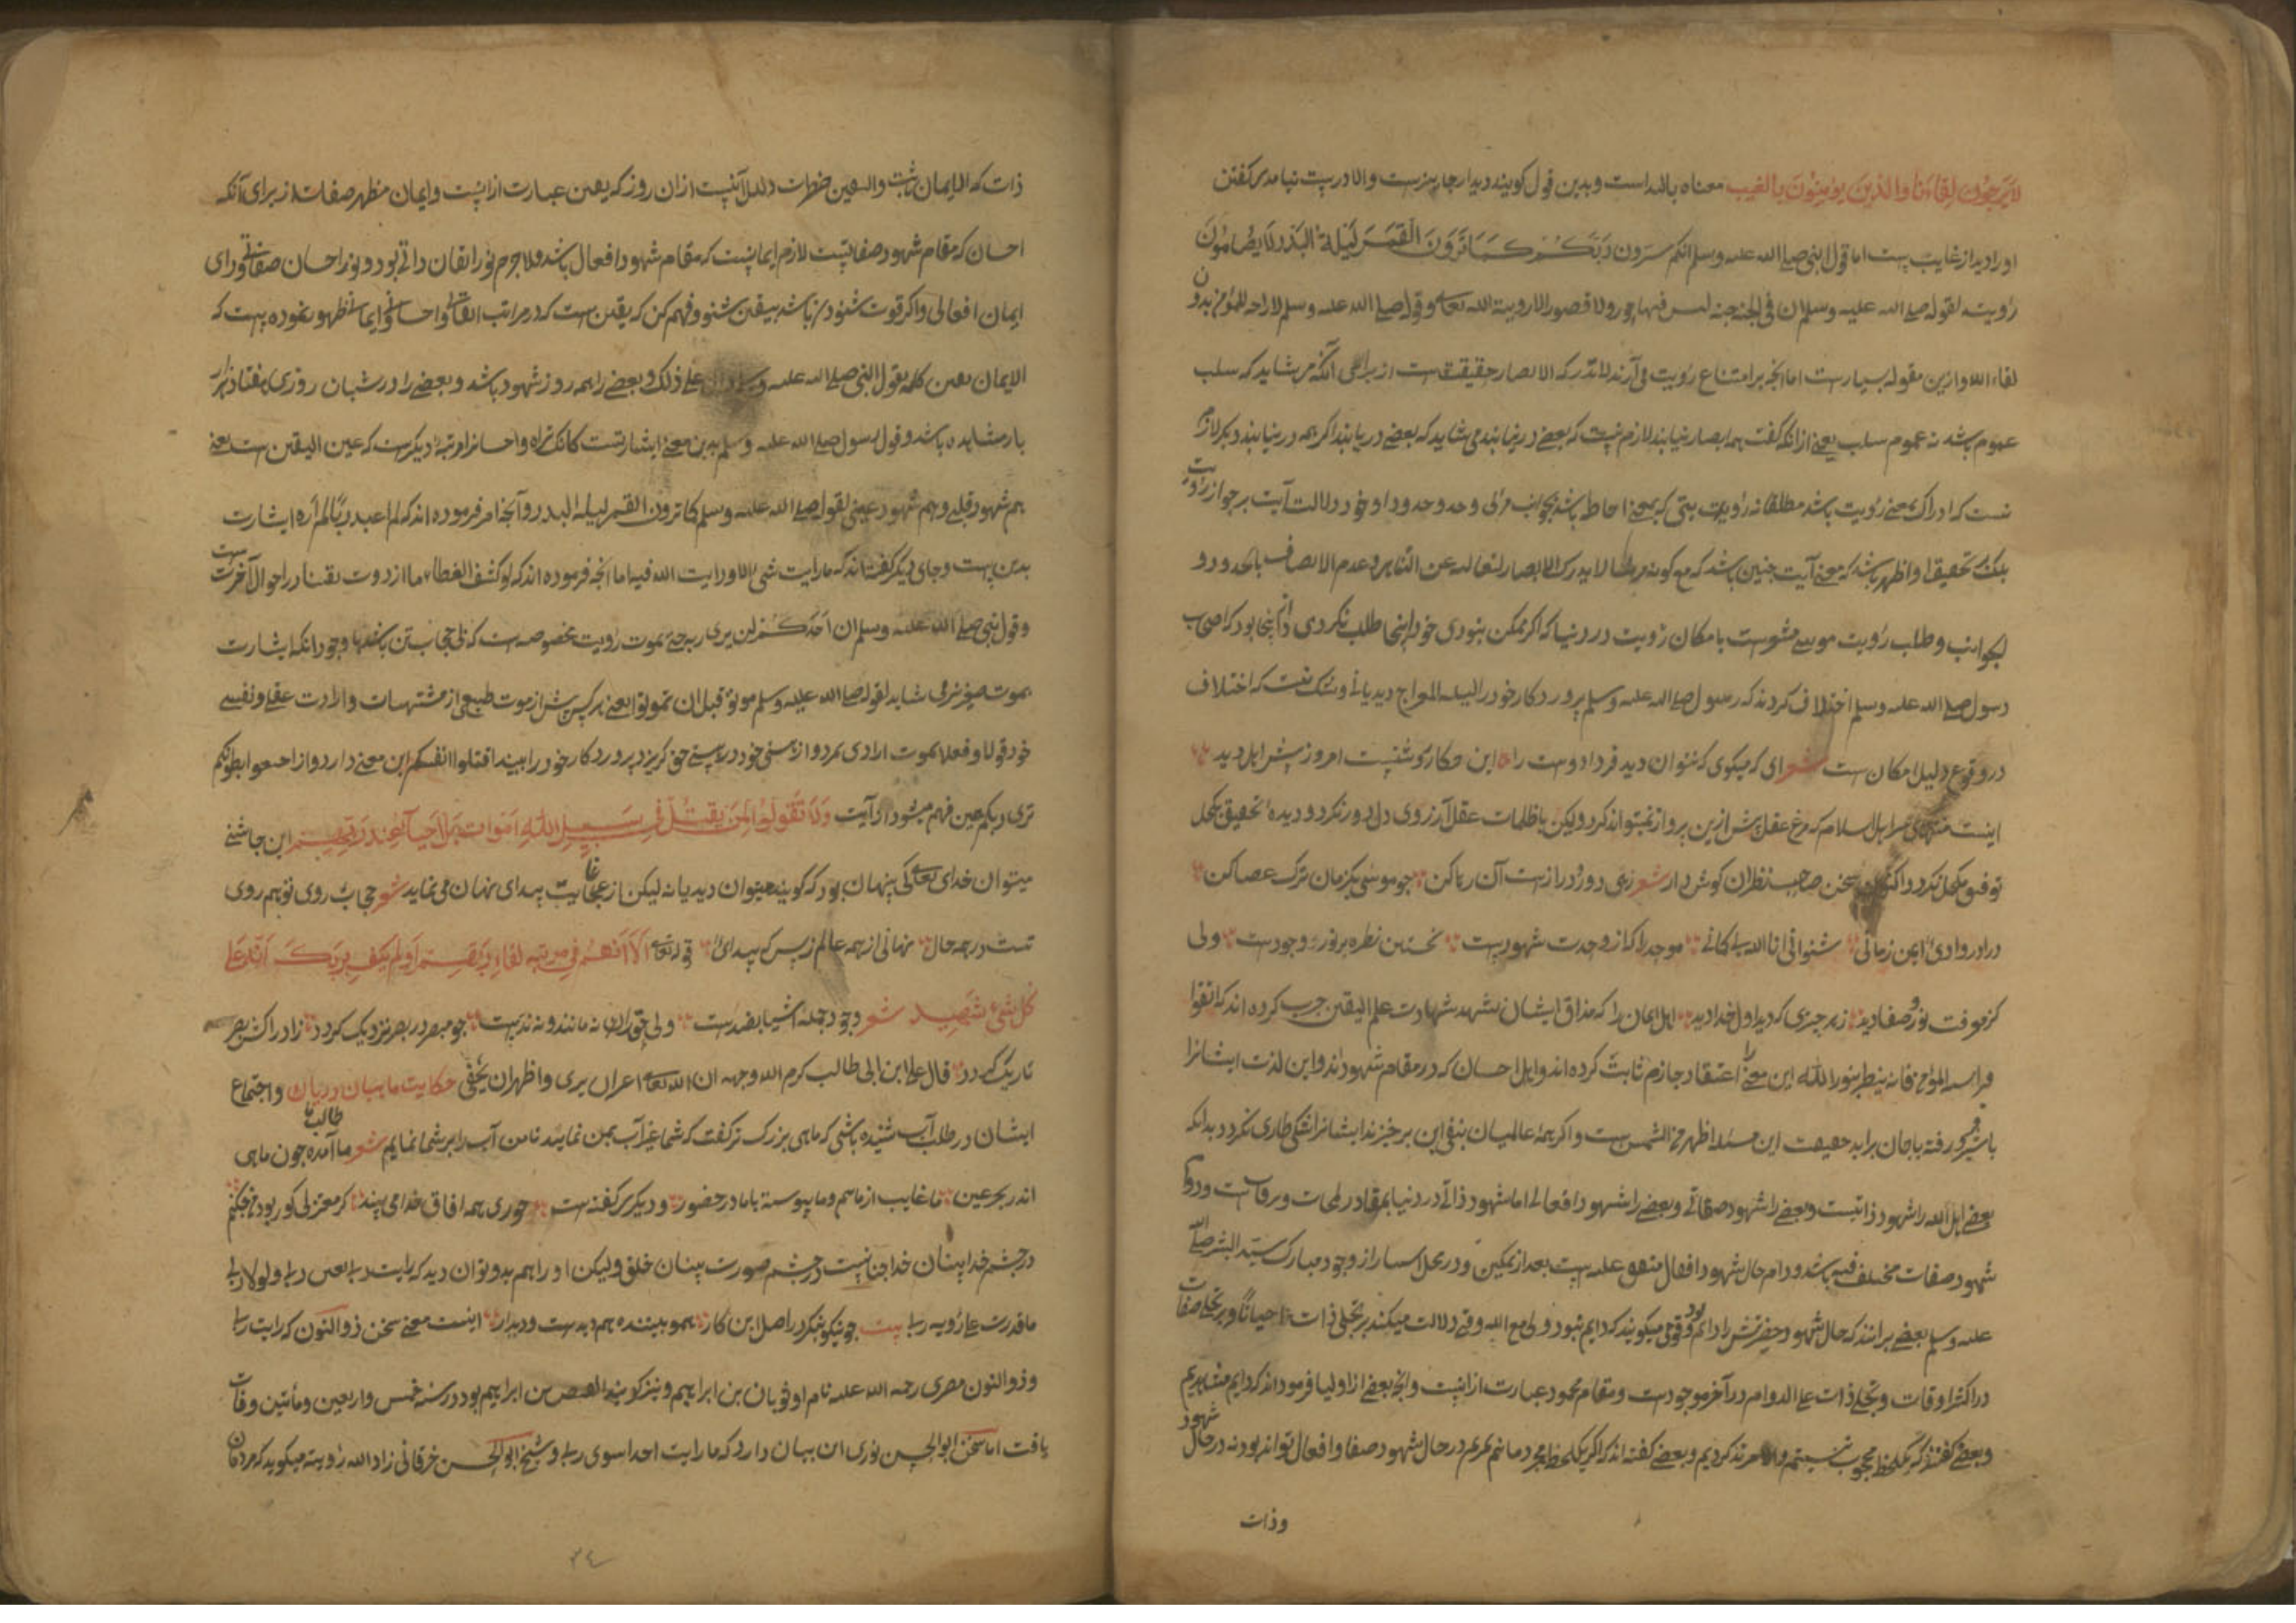 لا یرجون لقاءنا والذین یؤمنون بالغیب معناه بالله است وبدین قول کویند دیدار جایزست والا درست نیامدی کفتن
او را دیدار غایب اما قول النبی صلی الله علیه وسلم انکم سترون ربکم کما ترون القمر لیلة البدر لا یضامون
رؤیت لقوله صلی الله علیه وسلم ان فی الجنة جنة لیس فیها حور ولا قصور الا رویة الله تعالی وقوله صلی الله علیه وسلم لا راحة للمؤمن بدون
لقاء الله وازین مقوله بسیارست اما انچه بر امتناع رؤیت می آرند لا تدرکه الابصار حقیقت است از برای آنکه می شاید که سلب
عموم باشد نه عموم سلب یعنی ازانکه کفت همه ابصار نیابند لازم نیست که بعضی در نیابند می شاید که بعضی دریابند اکر همه در نیابند ودیکر لازم
نیست که ادراک بمعنی رؤیت باشد مطلقا نه رؤیت بمعنی احاطه باشد بجوانب مرئی وحد وحدود او خود دلالت آیت بر جواز رؤیت
بلک تحقیق او اظهر باشد که معنی آیت چنین باشد که لا یدرکه الابصار لتعالیه عن التناهی وعدم الاتصاف بالحدود و
الجوانب وطلب رؤیت موسی مشوست بامکان رؤیت در دنیا که اکر ممکن نبودی خود اینجا طلب نکردی وآنجا بود که اصحاب
رسول صلی الله علیه وسلم اختلاف کردند که رسول صلی الله علیه وسلم پروردکار خود را لیلة المعراج دید یا نی وشک نیست که اختلاف
در وقوع دلیل امکان است شعر ای که میکوی که نتوان دید فردا دوست را این حکایت امروز پیش اهل دید
اینست منتهای اهل اسلام که مرغ عقل پیش ازین پرواز نمیتواند کرد ولیکن با ظلمات عقل آرزوی دل دور نکردد ودیده تحقیق بکحل
توفیق مکحل نکردد اکنون سخن صاحب نظران کوش دار شعر رهی دور ودرازست آن رها کن چو موسی یکزمان ترک عصا کن
درا در وادی ایمن زمانی شنو انی انا الله بی کمانی موحد را که از وحدت شهودست نخستین نظره بر نور وجودست ولی
کز معرفت نور وصفا دید زهر چیزی که دید اول خدا دید اهل ایمان را که مذاق ایشان بشهد شهادت علم الیقین چرب کرده اند که اتقوا
فراسة المؤمن فانه ینظر بنور الله این معنی را اعتقاد جازم ثابت کرده اند واهل احسان که در مقام شهود اند واین لذت ایشانرا
با شیر فرو رفته با جان براید حقیقت این مسئله اظهر من الشمس ست واکر همهٔ عالمیان بنفی این برخیزند ایشانرا شکی طاری نکردد بدانکه
بعضی اهل الله را شهود ذاتیست وبعضی را شهود صفاتی وبعضی را شهود افعالی اما شهود ذاتی در دنیا بمقدار لمحات وبرقات است ودوام
شهود صفات مختلف فیه باشد ودوام حال شهود افعال متفق علیه است بعد از تمکین ودر محل از وجود مبارک سید البشر صلی الله
علیه وسلم بعضی برانند که حال شهود حضرتش را دایم بود وقومی میکویند که دایم نبود ولی مع الله وقت دلالت میکند بر تجلی ذات احیانا وبر تجلی صفات
در اکثر اوقات وتجلی ذات علی الدوام در آخر موجودست ومقام محمود عبارت ازانیست وانچه بعضی از اولیا فرموده اند که دایم مشاهدیم
وبعضی کفتند که یکلحظه محجوب نیستیم والا مرتد کردیم وبعضی کفته اند که اکر یکلحظه محجوب مانم بمیرم در حال شهود صفات وافعال تواند بود نه در حال شهود
وذات
ذات که الایمان یثبت والیقین خطرات دلیل آنست ازان روز که یقین عبارت ازانیست وایمان مظهر صفات از برای آنکه
احسان که مقام شهود صفاتیست لازم ایمانیست که مقام شهود افعال باشد ولاجرم نور ایقان ذاتی بود ونور احسان صفاتی ورای
ایمان افعالی واکر قوت شنود باشد بیقین شنو وفهم کن که یقین ست که در مراتب ایقانی واحسانی وایمانی ظهور نموده است که
الایمان یقین کله بقول النبی صلی الله علیه وسلم دال علی ذلک وبعضی را همه روز شهود باشد وبعضی را در شبان روزی هفتاد هزار
بار مشاهده باشد وقول رسول صلی الله علیه وسلم بدین معنی اشارتست کانک تراه واحسانرا مرتبهٔ دیکرست که عین الیقین است یعنی
هم شهود قلبی وهم شهود عینی لقوله صلی الله علیه وسلم کما ترون القمر لیلة البدر وآنچه امر فرموده اند که لم اعبد ربا لم اره اشارت
بدین است وجای دیکر کفته اند که ما رایت شیئا الا ورایت الله فیه اما انچه فرموده اند که لو کشف الغطاء ما ازددت یقینا در احوال آخرت ست
وقول نبی صلی الله علیه وسلم ان احدکم لن یری ربه حتی یموت رؤیت مخصوصه است که بی حجاب تن باشد با وجود انکه اشارت
بموت صغری می شاید لقوله صلی الله علیه وسلم موتوا قبل ان تموتوا یعنی هرکس پیش از موت طبیعی از مشتهیات وارادت عقلی ونفسی
خود قولا وفعلا بموت ارادی بمرد واز هستی خود در هستی حق کریزد پروردکار خود را بیند اقتلوا انفسکم این معنی دارد واز اجیعوا بطونکم
تری ربکم عین فهم میشود از آیت ولا تقولوا لمن یقتل فی سبیل الله اموات بل احیاء عند ربهم این چاشنی
میتوان خدای تعالی کی پنهان بود که کویند میتوان دید یا نه لیکن از غایت پیدای نهان می نماید شعر حجاب روی تو هم روی
تست در همه حال نهانی از همه عالم ز بس که پیدائی قوله تعالی الا انهم فی مریة من لقاء ربهم اولم یکف بربک انه علی
کل شئ شهید شعر وجود جمله اشیا بضدست ولی حق را نه مانند ونه ندست چو مبصر در بصر نزدیک کردد ز ادراکش بصر
تاریک کردد قال علی ابن ابی طالب کرم الله وجهه ان الله تعالی اعز ان یری واظهر ان یخفی حکایت ماهیان دریاک واجتماع
ایشان در طلب آب شنیده باشی که ماهی بزرک تر کفت که شما غیر آب بمن نمایند تا من آب را بر شما نمایم شعر ما آمده طالب ما چون ماهی
اندر بحر عین ما غایب از ماییم وما پیوسته با ما در حضور ودیکری کفته است حوری همه افاق خدا می بیند کر معتزلی کور بود من چکنم
در چشم خدا بینان خدا بین نیست در چشم صورت بینان خلق ولیکن او را هم بدو توان دید که رایت ربی بعین ربی ولولا ربی
ما قدرت علی رؤیه ربی بیت چو نیکو بنکری در اصل این کار همو بیننده هم دیده ست ودیدار اینست معنی سخن ذوالنون که رایت ربی
وذوالنون مصری رحمة الله علیه نام او ثوبان بن ابراهیم ونیز کویند الفیض بن ابراهیم بود در سنه خمس واربعین ومأتین وفات
یافت اما سخن ابوالحسین نوری این بیان دارد که ما رایت احدا سوی ربی وشیخ ابوالحسن خرقانی زاد الله رؤیته میکوید که مردمان
٣٤